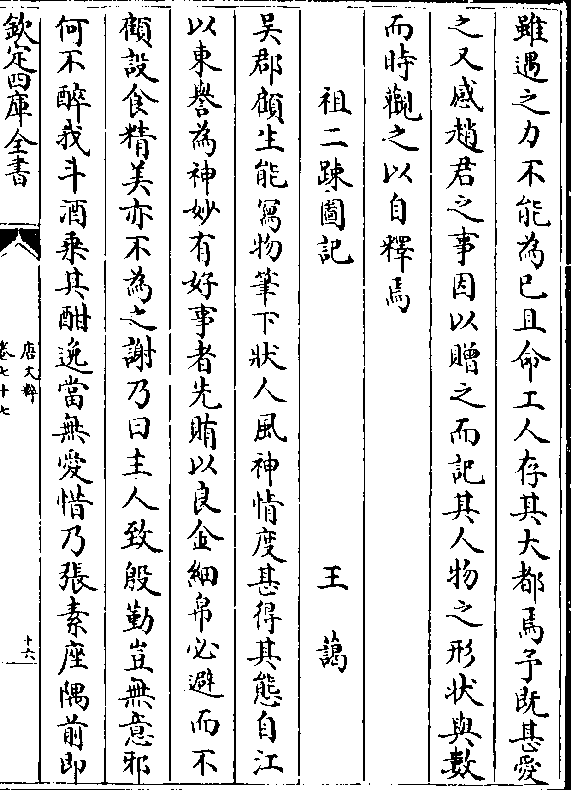 雖遇之力不能為已且命工人存其大都焉予既甚愛
之又感趙君之事因以贈之而記其人物之形狀與數
而時觀之以自釋焉
祖二踈圖記 王藹
吳郡顧生能寫物筆下狀人風神情度甚得其態自江
以東譽為神妙有好事者先賄以良金細帛必避而不
顧設食精美亦不為之謝乃曰主人致殷勤豈無意邪
何不醉我斗酒乘其酣逸當無愛惜乃張素座隅前即
欽定四庫全書
唐文粹
卷七十七
十六